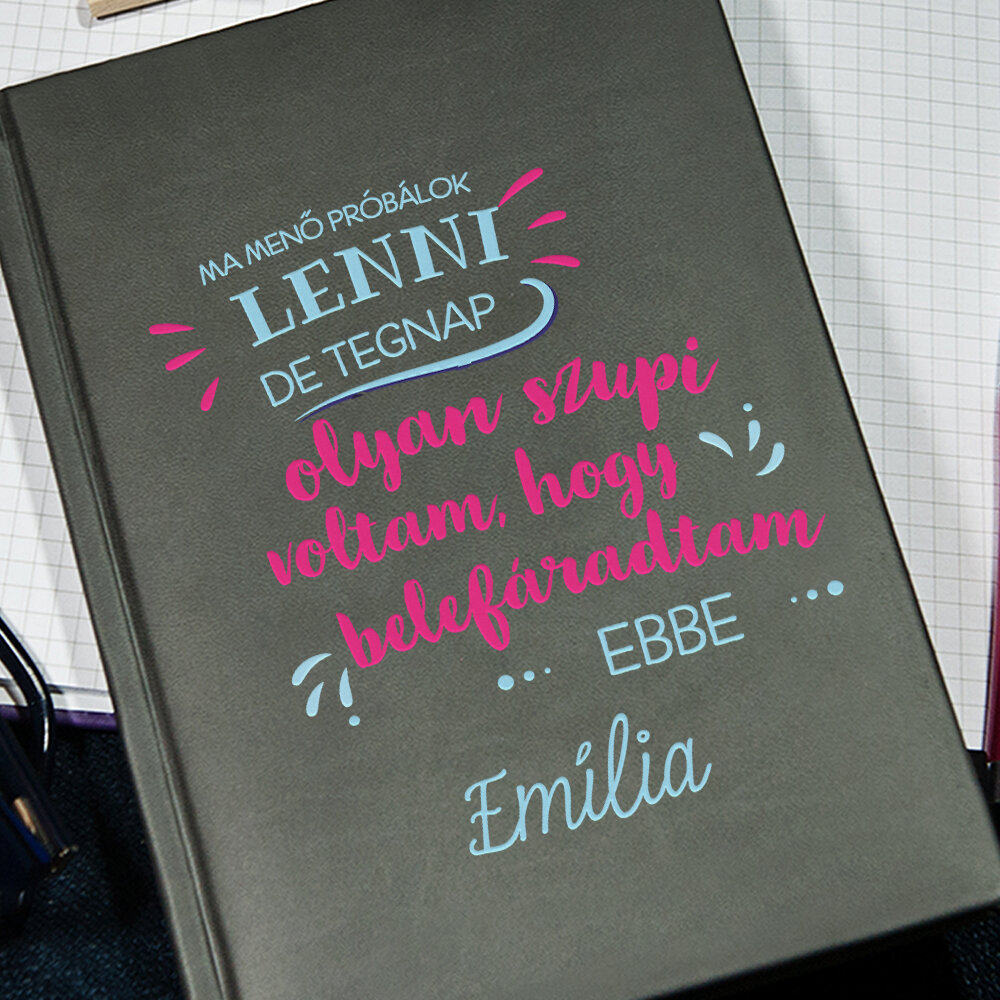 MA MENŐ PRÓBÁLOK
LENNI
DE TEGNAP
olyan szupi
voltam, hogy
belefáradtam
... EBBE ...
Emília